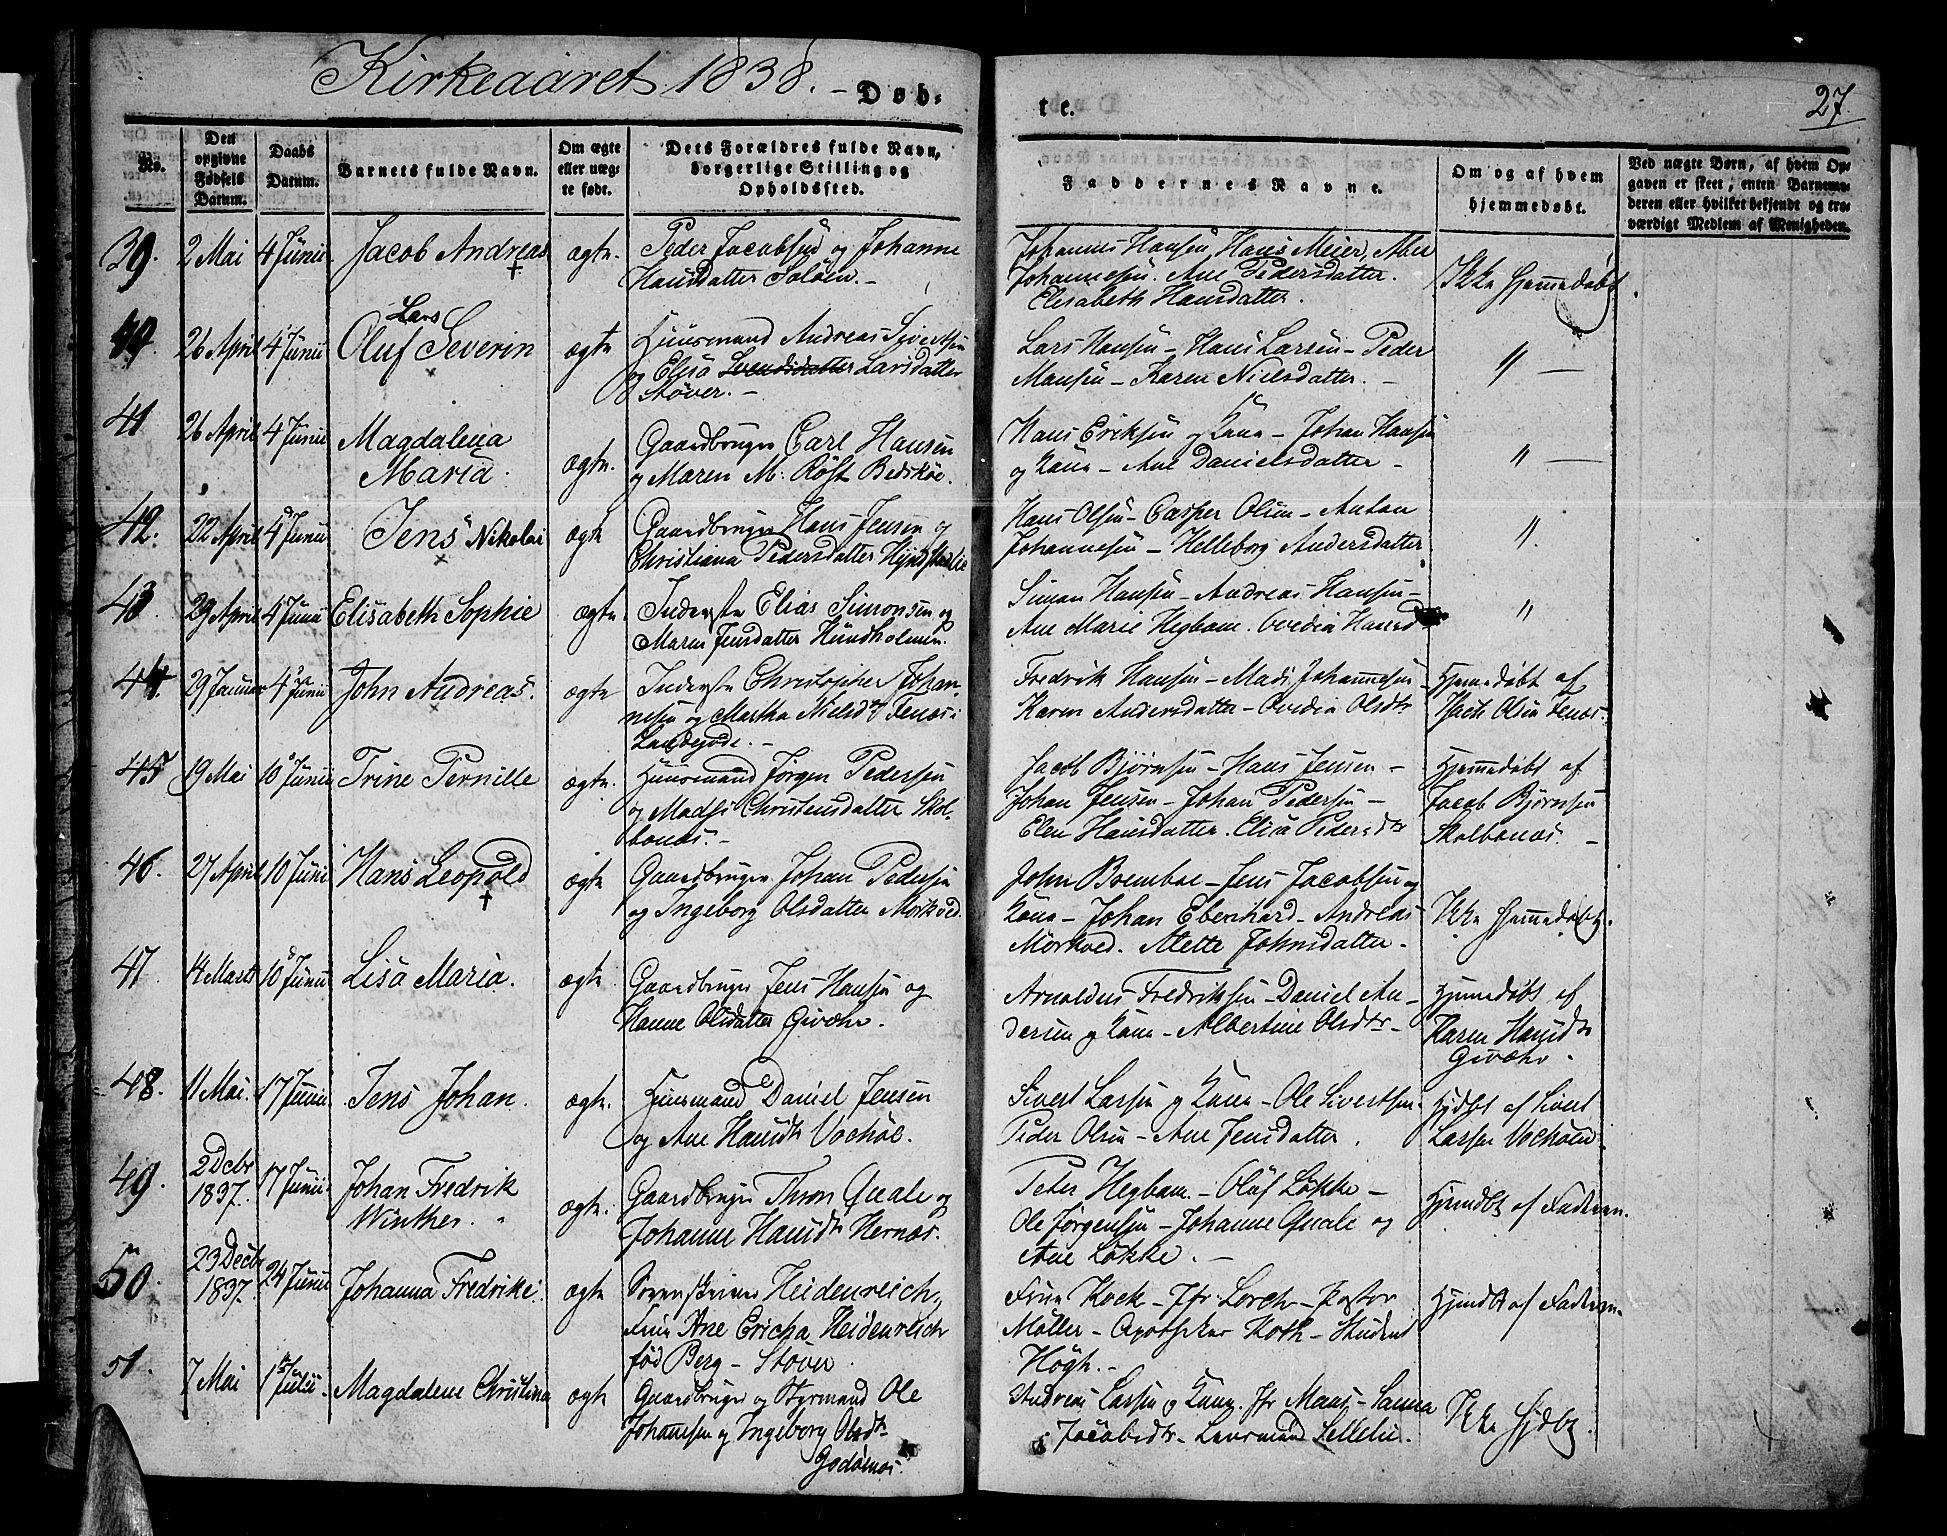 Kirkeaaret 1838. - Døb-
te.
27.
No.
Den opgivne Fødsels Datum.
Daabs Datum.
Barnets fulde Navn.
Om ægte eller uægte født.
Dets Forældres fulde Navn, borgerlige Stilling og Opholdssted.
Faddernes Navne.
Om og af hvem hjemmedøbt.
Ved uægte Børn, af hvem Opgaven er skeet, enten Barnemoderen eller hvilket bekjendt og troværdigt Medlem af Menigheden.
39. 2 Mai 4 Junii Jacob Andreas † ægte. Peder Jacobsen og Johanne
Hansdatter Soløen. -
Johannes Hansen, Hans Meier,
Johannesen. Ane Pedersdatter.
Elisabeth Hansdatter.
Ikke hjemmedøbt.
40. 26 April 4 Junii Lars
Oluf Severin ægte Huusmand Andreas Sivertsen
og Elisa Svendsdatter Larsdatter
Støver. -
Lars Hansen - Hans Larsen - Peder
Hansen - Karen Nielsdatter. -
" -
41 26 April 4 Junii Magdalena
Maria. ægte. Gaardbruger Carl Hansen
og Maren M. Röst Bedskøe.
Hans Eriksen og Kone - Johan Hansen
og Kone - Ane Danielsdatter -
" -
42. 22 April 4 Junii Jens Nikolai ægte Gaardbruger Hans Jensen og
Christiana Pedersdatter
Hans Olsen - Casper Olsen - Anton
Johannesen - Helleborg Andersdatter
".
43. 29 April 4 Junii Elisabeth Sophie ægte. Inderste Elias Simonsen og
Maren Jensdatter Hundholmen.
Simon Hansen - Andreas Hansen -
Ane Marie Hegbom. Ovedia Hansd
"
44. 29 Januar 4 Junii John Andreas. ægte Inderste Christopher Johan-
nesen og Martha Nielsd Fenæs i
Landegode. -
Fredrik Hansen - Mads Johannesen
Karen Andersdatter - Ovedia Olsdtr
Hjemmedøbt af
Olsen Fenæs.
45 19 Mai 10 Junii Trine Pernille ægte. Huusmand Jørgen Pedersen
og Madsi Christensdatter Skol-
bonæs. -
Jacob Bjørnsen - Hans Jensen -
Johan Jensen - Johan Pedersen -
Elen Hansdatter. Elisa Pedersdtr
Hjemmedøbt af
Jacob Bjørnsen
Skolbonæs. -
46. 27 April 10 Juni Hans Leopold † ægte Gaardbruger Johan Pedersen
og Ingeborg Olsdatter Mørkved.
John Bremboe - Jens Jacobsen og
Kone - Johan Eberhard - Andreas
Mørkved. Alette Johnsdatter -
Ikke hjemmedøbt.
47. 4 Marts 10 Junii Lisa Maria. ægte. Gaardbruger Jens Hansen og
Hanne Olsdatter Givæhr.
Arnoldus Fredriksen - Daniel An-
dersen og Kone - Albertine Olsdtr -
Hjemmedøbt af
Karen Hansdtr
Givæhr.
48. 11 Mai. 17 Junii Jens Johan. ægte. Huusmand Daniel Jensen
og Ane Hansdtr Vochöl.
Sivert Larsen og Kone - Ole Sivertsen -
Peder Olsen - Ane Jensdatter.
Hjdøbt af Sivert
Larsen
49. 2 Decbr
1837. 17 Junii Johan Fredrik
Winther. ægte. Gaardbruger Thron Quale og
Johanne Hansdtr Hernæs.
Peter Hegbom - Oluf Løkke -
Ole Jørgensen - Johanne Quale og
Ane Løkke. -
Hjemdbt af Faderen.
50. 23 Decbr
1837. 24 Junii Johanna Fredrike ægte Sorenskriver Heidenreich,
Frue Ane Ericha Heidenreich
fød Berg - Støver.
Frue Kock - Jfr Lorch - Pastor
Møller - Apotheker Koth - Student
Høgh. -
Hjemdbt af Faderen
51. 7 Mai 1 Julii. Magdalene Christina ægte Gaardbruger og Styrmand Ole
Johannesen og Ingeborg Olsdtr
Godønæs.
Andreas Larsen og Kone. Jfr Maas - Sanna
Jacobsdtr - Lensmand Jellelie.
Ikke hjdbt.